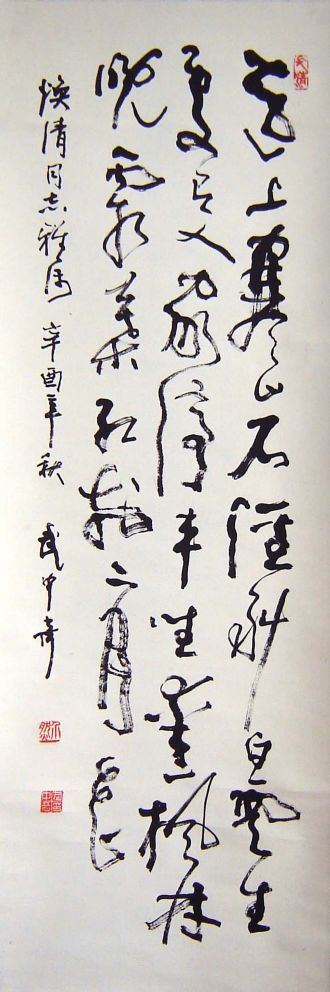 遠上寒山石徑斜白雲生
處有人家停車坐愛楓林
晚霜葉紅於二月花
煥清同志雅屬 辛酉年秋 武中奇